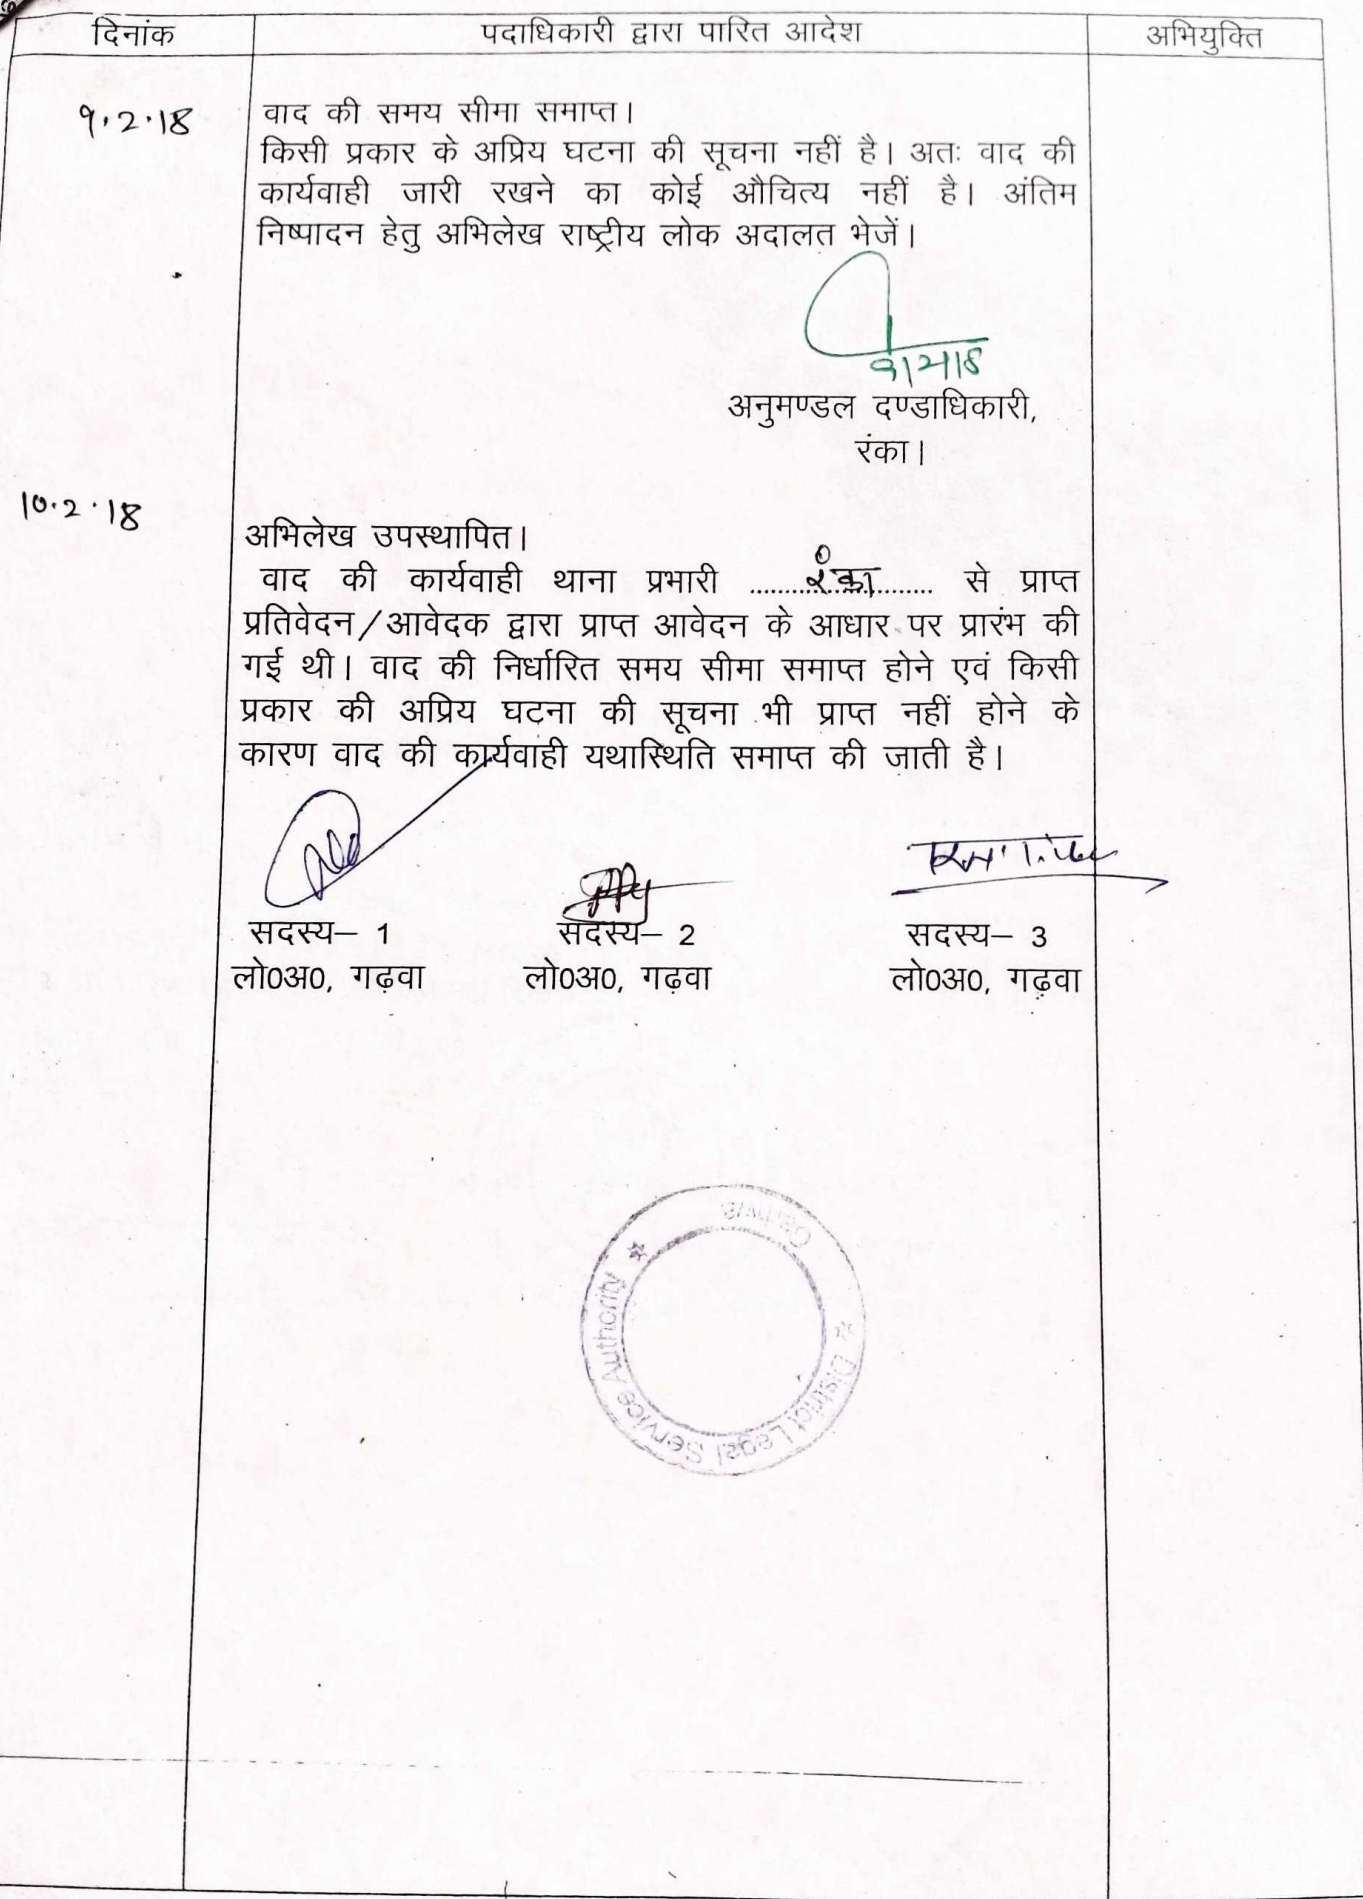 दिनांक पदाधिकारी द्वारा पारित आदेश अभियुक्ति
9.2.18 वाद की समय सीमा समाप्त।
किसी प्रकार के अप्रिय घटना की सूचना नहीं है। अतः वाद की
कार्यवाही जारी रखने का कोई औचित्य नहीं है। अंतिम
निष्पादन हेतु अभिलेख राष्ट्रीय लोक अदालत भेजें।
अनुमण्डल दण्डाधिकारी,
रंका।
10.2.18
अभिलेख उपस्थापित।
वाद की कार्यवाही थाना प्रभारी ......रंका...... से प्राप्त
प्रतिवेदन/आवेदक द्वारा प्राप्त आवेदन के आधार पर प्रारंभ की
गई थी। वाद की निर्धारित समय सीमा समाप्त होने एवं किसी
प्रकार की अप्रिय घटना की सूचना भी प्राप्त नहीं होने के
कारण वाद की कार्यवाही यथास्थिति समाप्त की जाती है।
सदस्य– 1 सदस्य– 2 सदस्य– 3
लो0अ0, गढ़वा लो0अ0, गढ़वा लो0अ0, गढ़वा
District Legal Service Authority
Garhwa